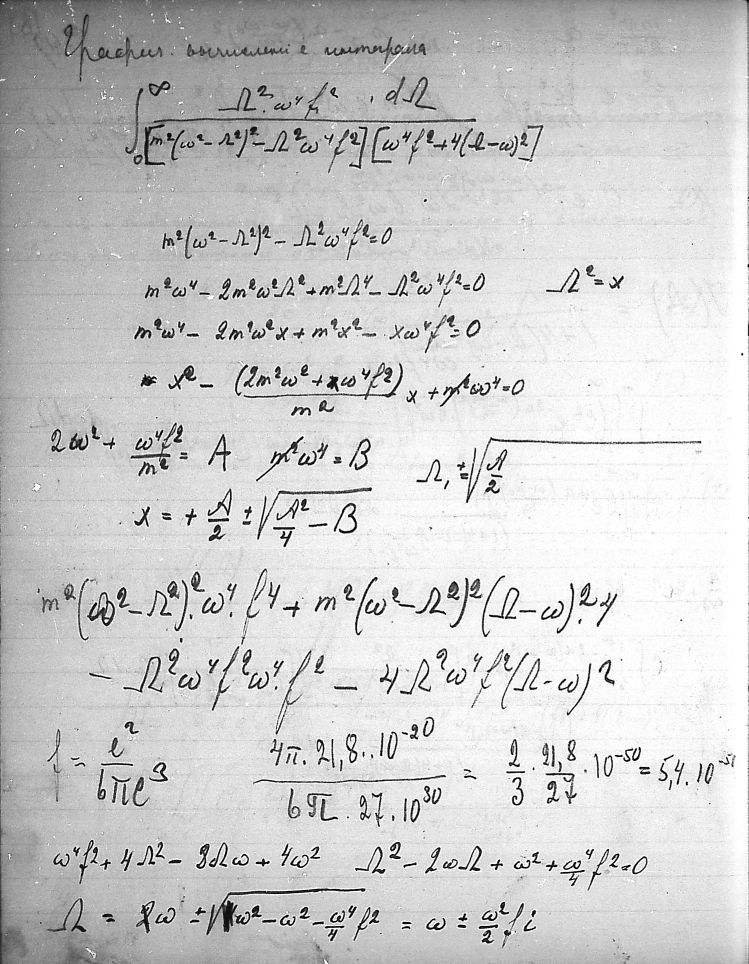 График. вычисление интеграла
∫₀^∞ Ω²·ω⁴f²·dΩ / [m²(ω²-Ω²)²-Ω²ω⁴f²][ω⁴f²+4(Ω-ω)²]
m²(ω²-Ω²)² - Ω²ω⁴f²=0
m²ω⁴-2m²ω²Ω²+m²Ω⁴-Ω²ω⁴f²=0 Ω²=x
m²ω⁴-2m²ω²x+m²x²-xω⁴f²=0
x² - (2m²ω²+ω⁴f²)/m² x + ω⁴=0
2ω²+ ω⁴f²/m² = A ω⁴=B Ω₁ ±√(A/2
x = + A/2 ± √(A²/4 - B)
m²(ω²-Ω²)²·ω⁴·f⁴ + m²(ω²-Ω²)²(Ω-ω)²·4
- Ω²ω⁴f²ω⁴·f² - 4Ω²ω⁴f²(Ω-ω)²
f = e²/6πc³ 4π·21,8·10⁻²⁰/6π·27·10³⁰ = 2/3·21,8/27·10⁻⁵⁰ = 5,4·10⁻⁵¹
ω⁴f²+4Ω²-8Ωω+4ω² Ω²-2ωΩ+ω²+ω⁴/4 f²=0
Ω = ω ± √(ω²-ω²-ω⁴/4 f²) = ω ± ω²/2 fi